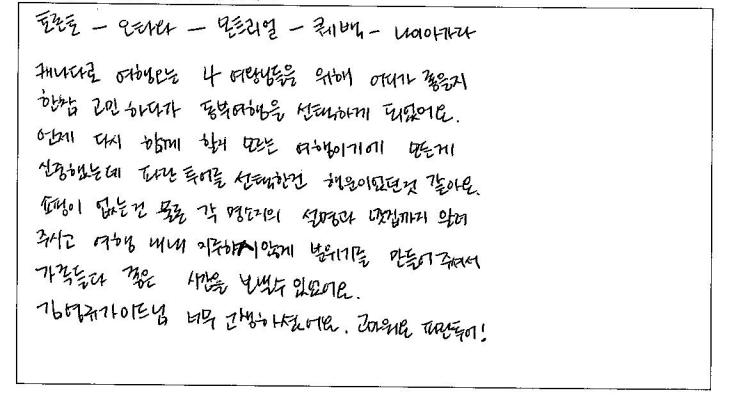 토론토 - 오타와 - 몬트리얼 - 퀘백 - 나이아가라
캐나다로 여행오는 4 여왕님들을 위해 어디가 좋을지
한참 고민 하다가 동부여행을 선택하게 되었어요.
언제 다시 함께 할지 모르는 여행이기에 모든게
신중했는데 파란투어를 선택한건 행운이였던것 같아요.
쇼핑이 없는건 물론 각 명소지의 설명과 맛집까지 알려
주시고 여행 내내 지루하지않게 분위기를 만들어주셔서
가족들다 좋은 시간을 보낼수 있었어요.
김영규가이드님 너무 고생하셨어요. 고마워요 파란투어!